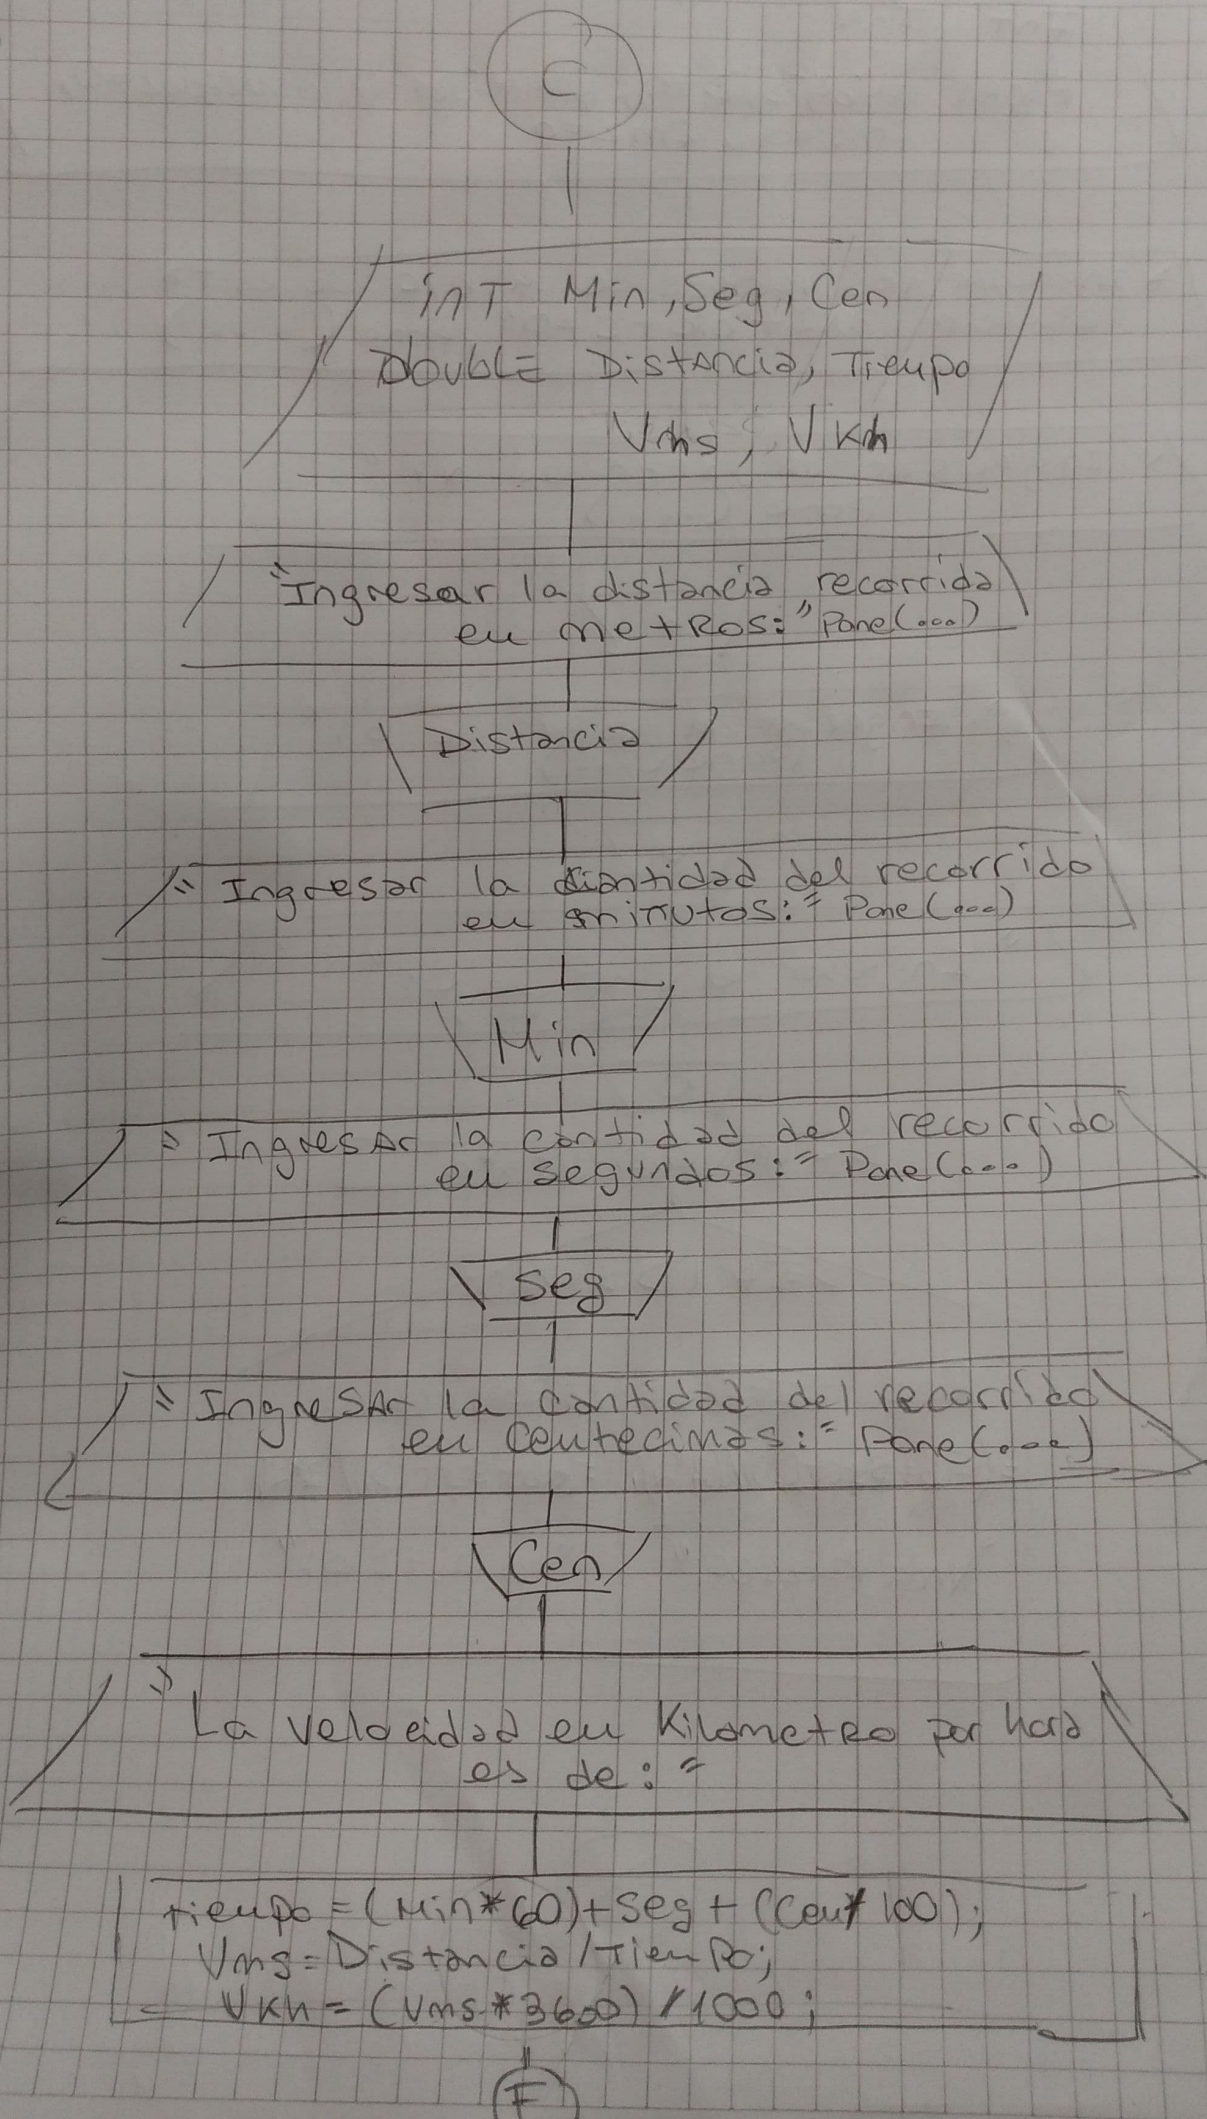 C
inT Min, Seg, Cen
DoubLE Distancia, Tiempo
Vms, Vkh
"Ingresar la distancia recorrida
en metRos:" Pone(...)
Distancia
"Ingresar la cantidad del recorrido
en minutos:" Pone(...)
Min
"Ingresar la cantidad del recorrido
en segundos:" Pone(...)
Seg
"Ingresar la cantidad del recorrido
en centecimas:" Pone(...)
Cen
"La velocidad en Kilometro por hora
es de:"
tiempo = (Min*60)+seg+(Cen/100);
Vms=Distancia/TiemPo;
Vkh=(Vms*3600)/1000;
F